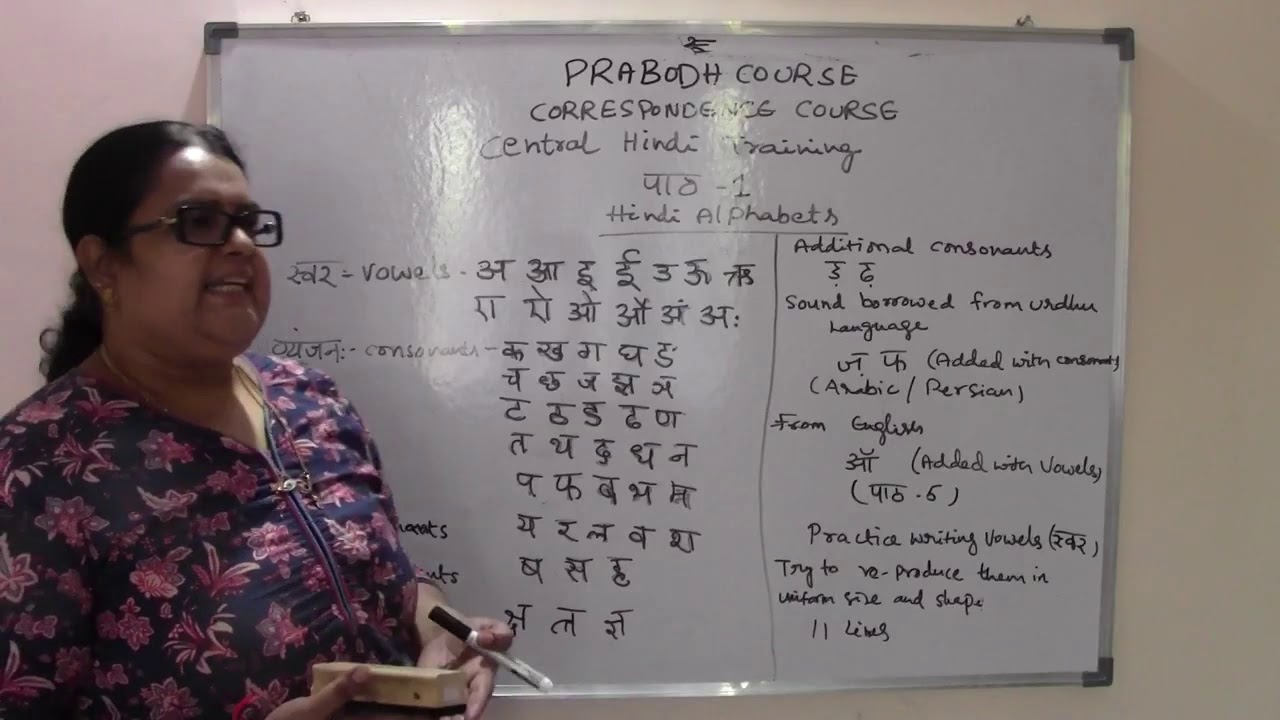 PRABODH COURSE
CORRESPONDENCE COURSE
Central Hindi Training
पाठ -1
Hindi Alphabets
स्वर = vowels - अ आ इ ई उ ऊ ऋ
ओ औ अं अः
व्यंजनः- consonants - क ख ग घ ङ
च छ ज झ ञ
ट ठ ड ढ ण
त थ द ध न
प फ ब भ म
य र ल व श
ष स ह
क्ष त्र ज्ञ
Additional consonants
ड़ ढ़
Sound borrowed from urdhu
Language
ज फ (Added with consonants
(Arabic / Persian)
From English
ऑ (Added with Vowels)
(पाठ -5)
Practice writing Vowels (स्वर)
Try to re-produce them in
uniform size and shape
11 lines